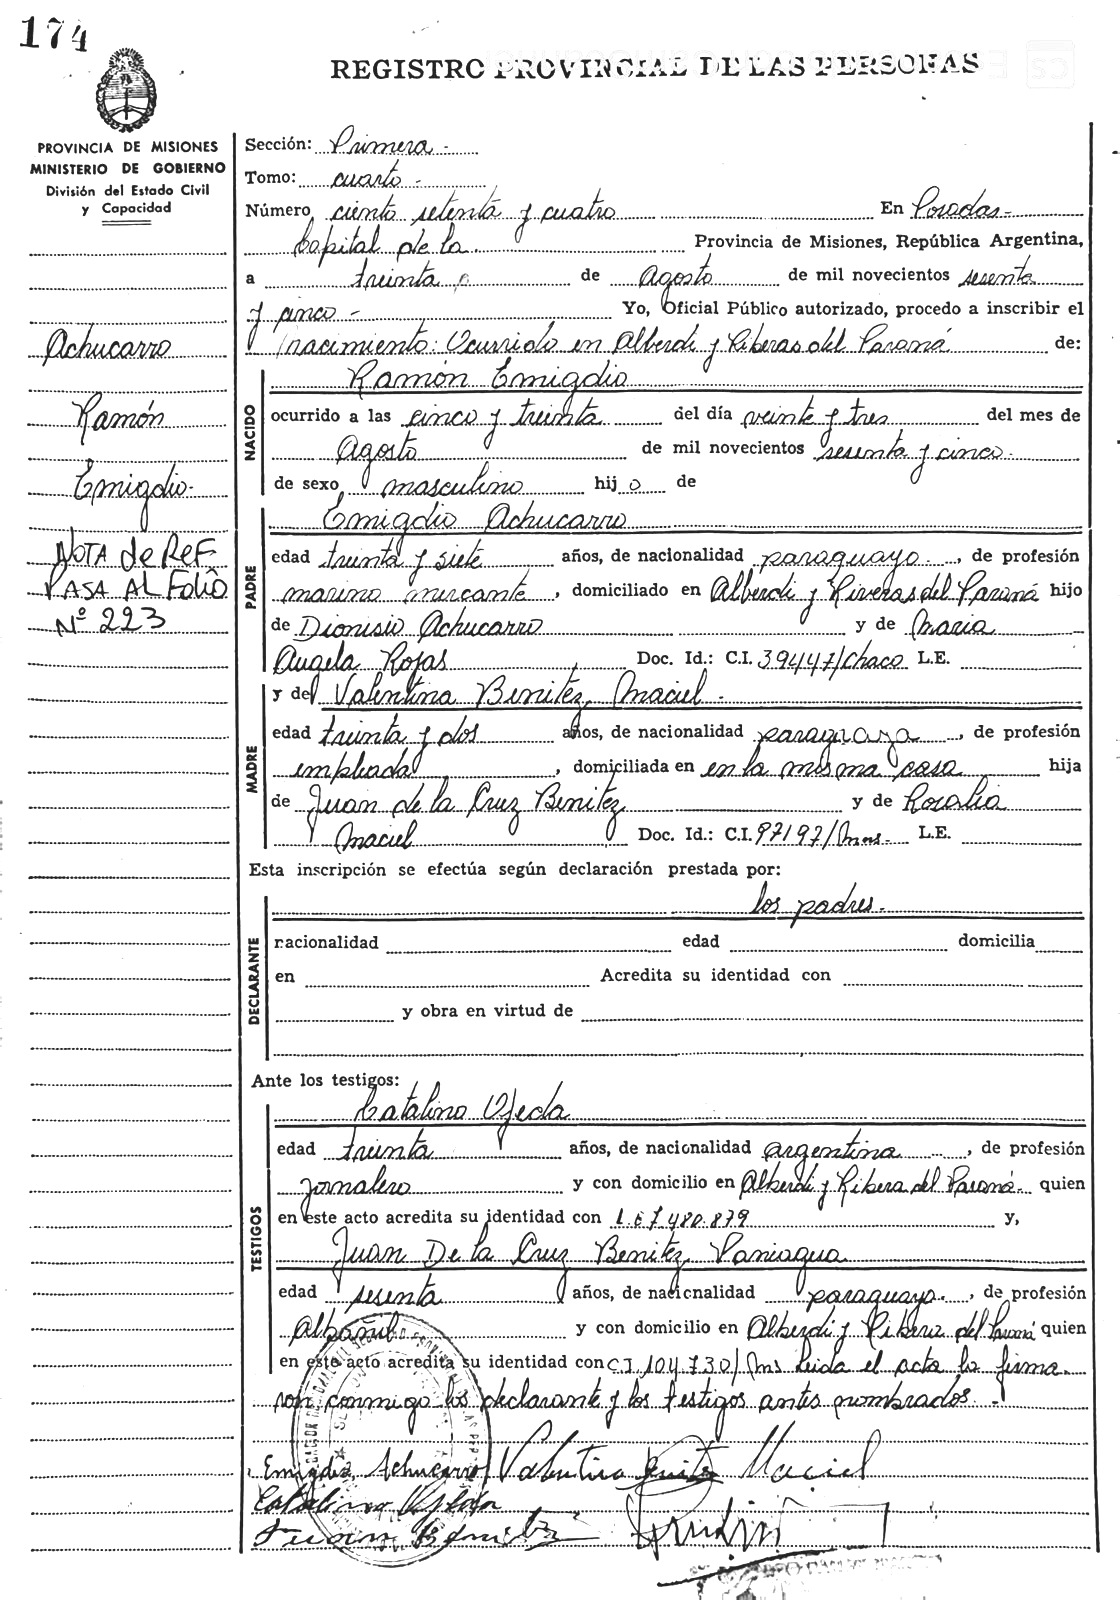 174
REGISTRO PROVINCIAL DE LAS PERSONAS
PROVINCIA DE MISIONES
MINISTERIO DE GOBIERNO
División del Estado Civil
y Capacidad
Achucarro
Ramón
Emigdio
NOTA de ReF.
PASA AL Folio
Nº 223
Sección: Primera -
Tomo: cuarto -
Número ciento setenta y cuatro En Posadas -
Capital de la Provincia de Misiones, República Argentina,
a treinta de Agosto de mil novecientos sesenta
y cinco - Yo, Oficial Público autorizado, procedo a inscribir el
nacimiento: Ocurrido en Alberdi y Riberas del Paraná de:
NACIDO
Ramón Emigdio
ocurrido a las cinco y treinta del día veinte y tres del mes de
Agosto de mil novecientos sesenta y cinco -
de sexo masculino hijo de
PADRE
Emigdio Achucarro
edad treinta y siete años, de nacionalidad paraguayo, de profesión
marino mercante, domiciliado en Alberdi y Riveras del Paraná hijo
de Dionisio Achucarro y de Maria
Angela Rojas Doc. Id.: C.I. 39447/Chaco L.E.
MADRE
y de Valentina Benitez Maciel -
edad treinta y dos años, de nacionalidad paraguaya, de profesión
empleada, domiciliada en en la misma casa hija
de Juan de la Cruz Benitez y de Rosalia
Maciel Doc. Id.: C.I. 97197/Mns. L.E.
Esta inscripción se efectúa según declaración prestada por:
DECLARANTE
los padres.
nacionalidad edad domicilia
en Acredita su identidad con
y obra en virtud de
Ante los testigos:
TESTIGOS
Catalino Ojeda
edad treinta años, de nacionalidad argentina, de profesión
jornalero y con domicilio en Alberdi y Ribera del Paraná quien
en este acto acredita su identidad con 7.480.879 y,
Juan De la Cruz Benitez Paniagua
edad sesenta años, de nacionalidad paraguayo, de profesión
Albañil y con domicilio en Alberdi y Ribera del Paraná quien
en este acto acredita su identidad con C.I. 104.730/Mns Leida el acta la firma
con conmigo los declarante y los testigos antes nombrados. -
Emigdio Achucarro Valentina Benitez Maciel
Catalino Ojeda
Juan Benitez